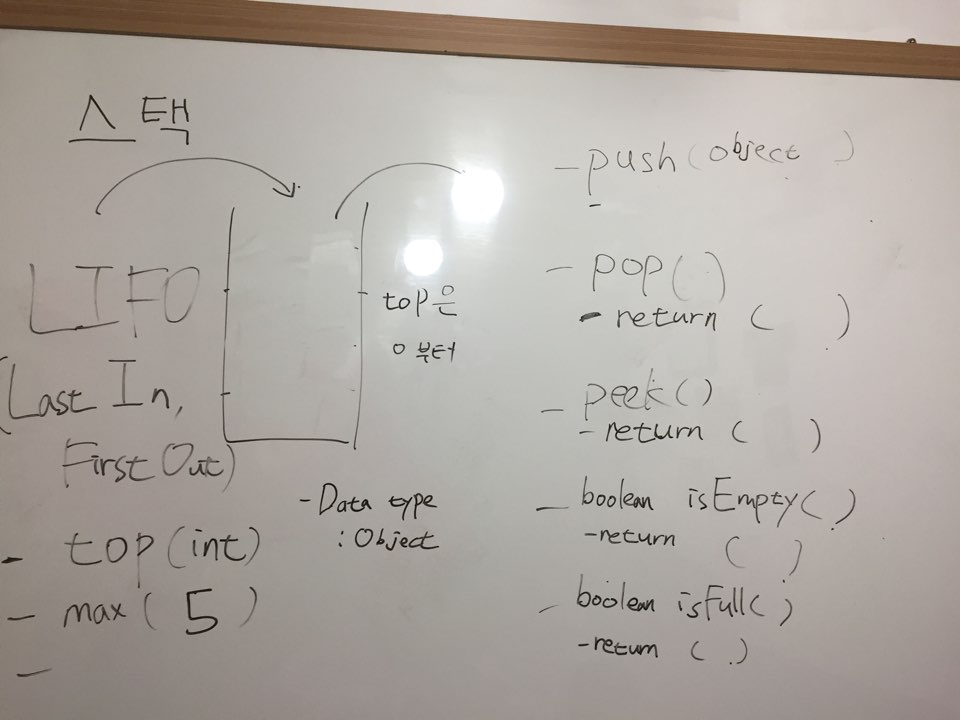 스택
LIFO
(Last In,
First Out)
- top(int)
- max( 5 )
-
top은
0부터
- Data type
: Object
- push(object )
-
- pop( )
- return ( )
- peek( )
- return ( )
- boolean isEmpty( )
- return ( )
- boolean isFull( )
- return ( )